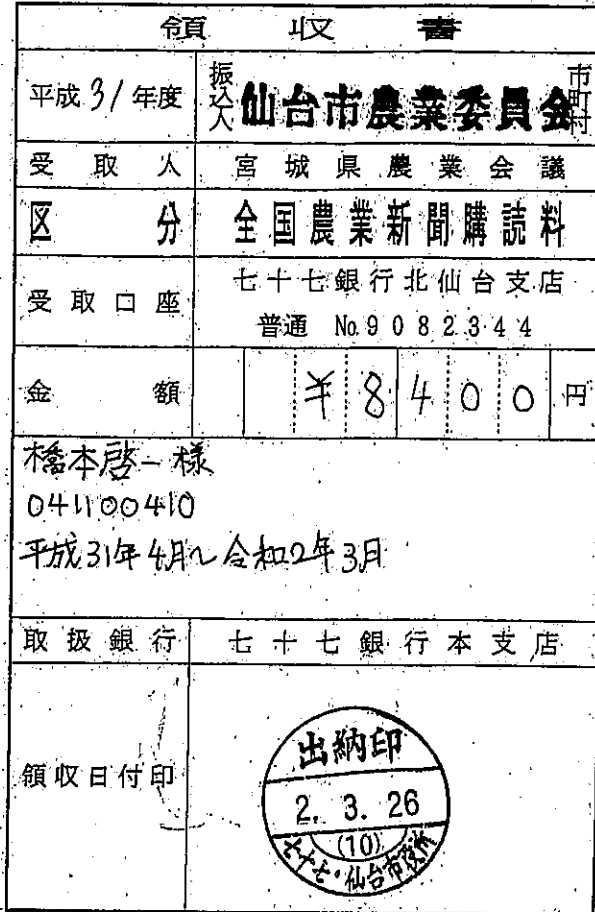 領収書
平成31年度 振込人 仙台市農業委員会 市町村
受取人 宮城県農業会議
区分 全国農業新聞購読料
受取口座 七十七銀行北仙台支店
普通 No.9082344
金額 ¥8400円
橋本啓一様
041100410
平成31年4月~令和2年3月
取扱銀行 七十七銀行本支店
領収日付印
出納印
2. 3. 26
(10)
七十七・仙台市役所